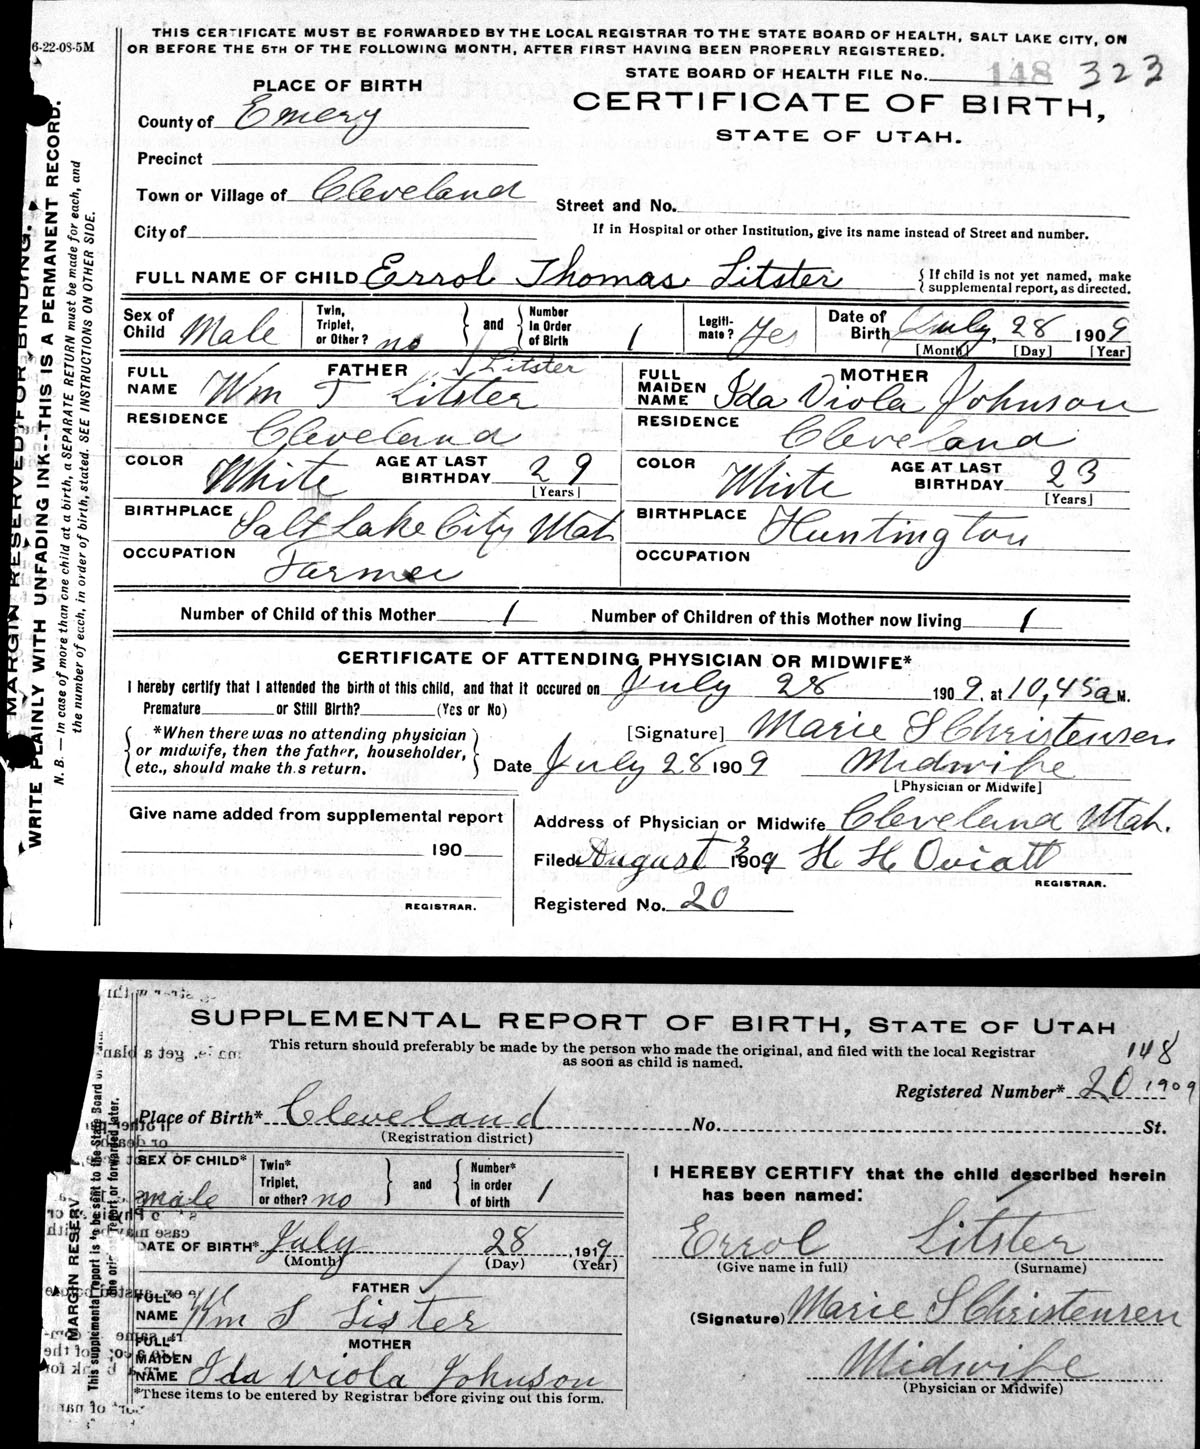 6-22-08-5M
THIS CERTIFICATE MUST BE FORWARDED BY THE LOCAL REGISTRAR TO THE STATE BOARD OF HEALTH, SALT LAKE CITY, ON
OR BEFORE THE 5TH OF THE FOLLOWING MONTH, AFTER FIRST HAVING BEEN PROPERLY REGISTERED.
STATE BOARD OF HEALTH FILE No. 148 323
PLACE OF BIRTH
CERTIFICATE OF BIRTH,
STATE OF UTAH.
County of Emery
Precinct
Town or Village of Cleveland
Street and No.
City of
If in Hospital or other Institution, give its name instead of Street and number.
FULL NAME OF CHILD Errol Thomas Litster
{ If child is not yet named, make
supplemental report, as directed.
Sex of Child Male
Twin, Triplet, or Other? no } and { Number in Order of Birth 1
Legiti-mate? Yes
Date of Birth July, 28 1909
[Month] [Day] [Year]
FATHER
FULL NAME Wm T Litster Litster
RESIDENCE Cleveland
COLOR White AGE AT LAST BIRTHDAY 29
[Years]
BIRTHPLACE Salt Lake City Utah
OCCUPATION Farmer
MOTHER
FULL MAIDEN NAME Ida Viola Johnson
RESIDENCE Cleveland
COLOR White AGE AT LAST BIRTHDAY 23
[Years]
BIRTHPLACE Huntington
OCCUPATION
Number of Child of this Mother 1 Number of Children of this Mother now living 1
CERTIFICATE OF ATTENDING PHYSICIAN OR MIDWIFE*
I hereby certify that I attended the birth of this child, and that it occured on July 28 1909. at 10,45a M.
Premature or Still Birth? (Yes or No)
*When there was no attending physician
or midwife, then the father, householder,
etc., should make th.s return.
[Signature] Marie S Christensen
Date July 28 1909 Midwife
[Physician or Midwife]
Give name added from supplemental report
190
REGISTRAR.
Address of Physician or Midwife Cleveland Utah.
Filed August 3 1909 H H Oviatt
REGISTRAR.
Registered No. 20
MARGIN RESERVED FOR BINDING.
WRITE PLAINLY WITH UNFADING INK--THIS IS A PERMANENT RECORD.
N. B. — In case of more than one child at a birth, a SEPARATE RETURN must be made for each, and
the number of each, in order of birth, stated. SEE INSTRUCTIONS ON OTHER SIDE.
SUPPLEMENTAL REPORT OF BIRTH, STATE OF UTAH
This return should preferably be made by the person who made the original, and filed with the local Registrar
as soon as child is named.
148
Registered Number* 20 1909
Place of Birth* Cleveland No. St.
(Registration district)
SEX OF CHILD* male
Twin* Triplet, or other? no } and { Number* in order of birth 1
DATE OF BIRTH* July 28, 1919
(Month) (Day) (Year)
FATHER
FULL NAME Wm S Lister
MOTHER
FULL MAIDEN NAME Ida Viola Johnson
*These items to be entered by Registrar before giving out this form.
I HEREBY CERTIFY that the child described herein
has been named:
Errol Litster
(Give name in full) (Surname)
(Signature) Marie S Christensen
Midwife
(Physician or Midwife)
MARGIN RESERV
This supplemental report is to be sent to the State Board of
report or forwarded later.